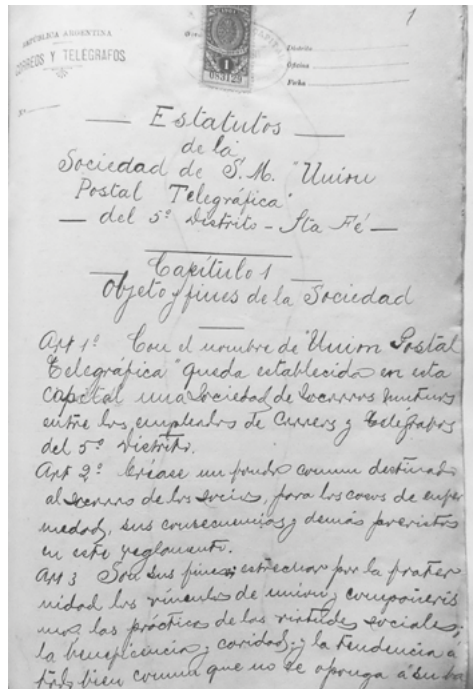 1
REPÚBLICA ARGENTINA
CORREOS Y TELEGRAFOS
Distrito
Oficina
Fecha
1
083129
Nº
— Estatutos —
de la
Sociedad de S. M. "Union
Postal Telegráfica"
— del 5º Distrito - Sta Fé —
Capítulo 1
Objeto y fines de la Sociedad
Art 1º Con el nombre de "Union Postal
Telegráfica" queda establecida en esta
capital una Sociedad de Socorros Mutuos
entre los empleados de Correos y Telégrafos
del 5º Distrito.
Art 2º Créase un fondo comun destinado
al socorro de los socios, para los casos de enfer
medad, sus consecuencias y demás previstos
en este reglamento.
Art 3 Son sus fines estrechar por la frater
nidad los vínculos de union y compañeris
mo, las práctica de las virtudes sociales,
la beneficencia y caridad; y la tendencia á
todo bien comun que no se oponga á su